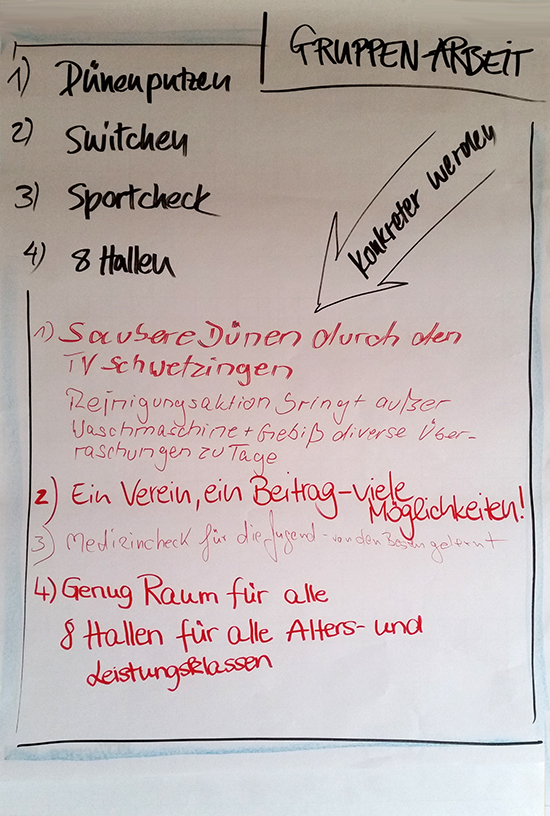 GRUPPEN-ARBEIT
1) Dünenputzen
2) Switchen
3) Sportcheck
4) 8 Hallen
konkreter werden
1) Saubere Dünen durch den
TV Schwetzingen
Reinigungsaktion bringt außer
Waschmaschine + Gebiß diverse Über-
raschungen zu Tage
2) Ein Verein, ein Beitrag - viele
Möglichkeiten!
3) Medizincheck für die Jugend - von den Besten gelernt
4) Genug Raum für alle
8 Hallen für alle Alters- und
Leistungsklassen